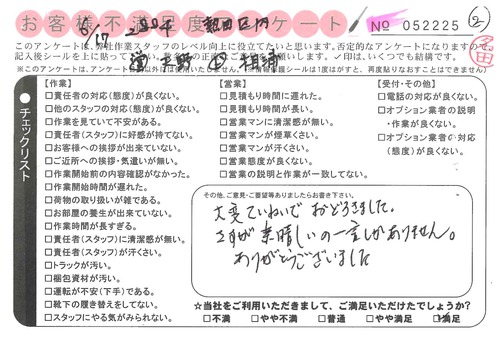 お客様不満足度アンケート
No 052225
②
8/17
熱田区内
このアンケートは、弊社作業スタッフのレベル向上に役立てたいと思います。否定的なアンケートになりますので、
※このアンケートは、アンケート
チェックリスト
【作業】
□責任者の対応(態度)が良くない。
□他のスタッフの対応(態度)が良くない。
□作業を見ていて不安がある。
□責任者(スタッフ)に好感が持てない。
□お客様への挨拶が出来ていない。
□ご近所への挨拶・気遣いが無い。
□作業開始前の内容確認がなかった。
□作業開始時間が遅れた。
□荷物の取り扱いが雑である。
□お部屋の養生が出来ていない。
□作業時間が長すぎる。
□責任者(スタッフ)に清潔感が無い。
□責任者(スタッフ)が汗くさい。
□トラックが汚い。
□梱包資材が汚い。
□運転が不安(下手)である。
□靴下の履き替えをしてない。
□スタッフにやる気がみられない。
【営業】
□見積もり時間に遅れた。
□見積もり時間が長い。
□営業マンに清潔感が無い。
□営業マンが煙草くさい。
□営業マンが汗くさい。
□営業態度が良くない。
□営業の説明と作業が一致してない。
【受付・その他】
□電話の対応が良くない。
□オプション業者の説明
・作業が良くない。
□オプション業者の対応
(態度)が良くない。
その他、ご意見・ご要望等ありましたらお書き下さい。
大変ていねいで おどろきました。
さすが 素晴しいの一言しかありません。
ありがとうございました
☆当社をご利用いただきまして、ご満足いただけたでしょうか?
□不満 □やや不満 □普通 □やや満足 □満足